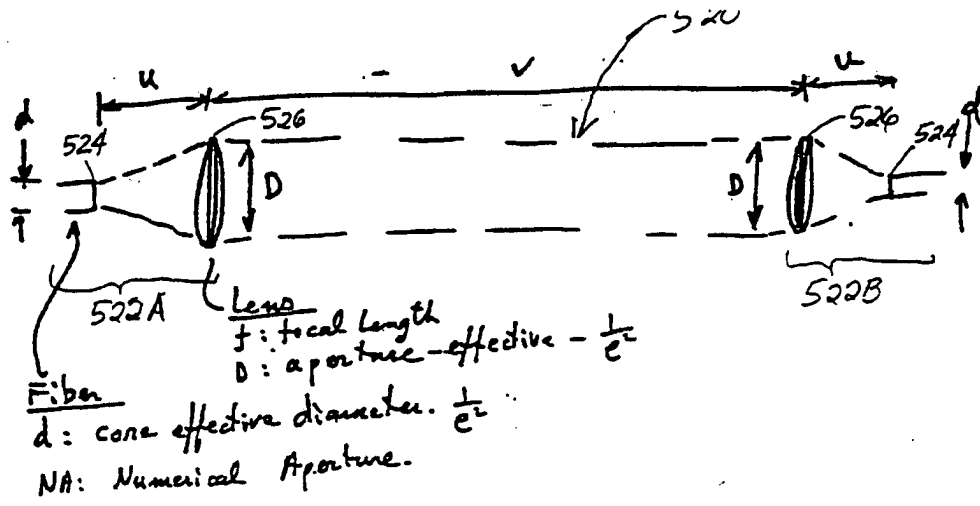 520
u
v
u
d
524
526
D
D
526
524
d
522A
522B
Lens
f: focal Length
D: aperture-effective - 1/e²
Fiber
d: core effective diameter. 1/e²
NA: Numerical Aperture.